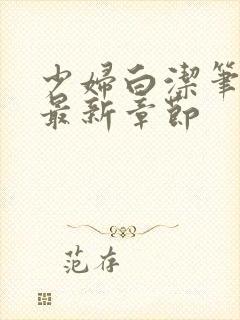 少婦白潔筆
最新章節
范存